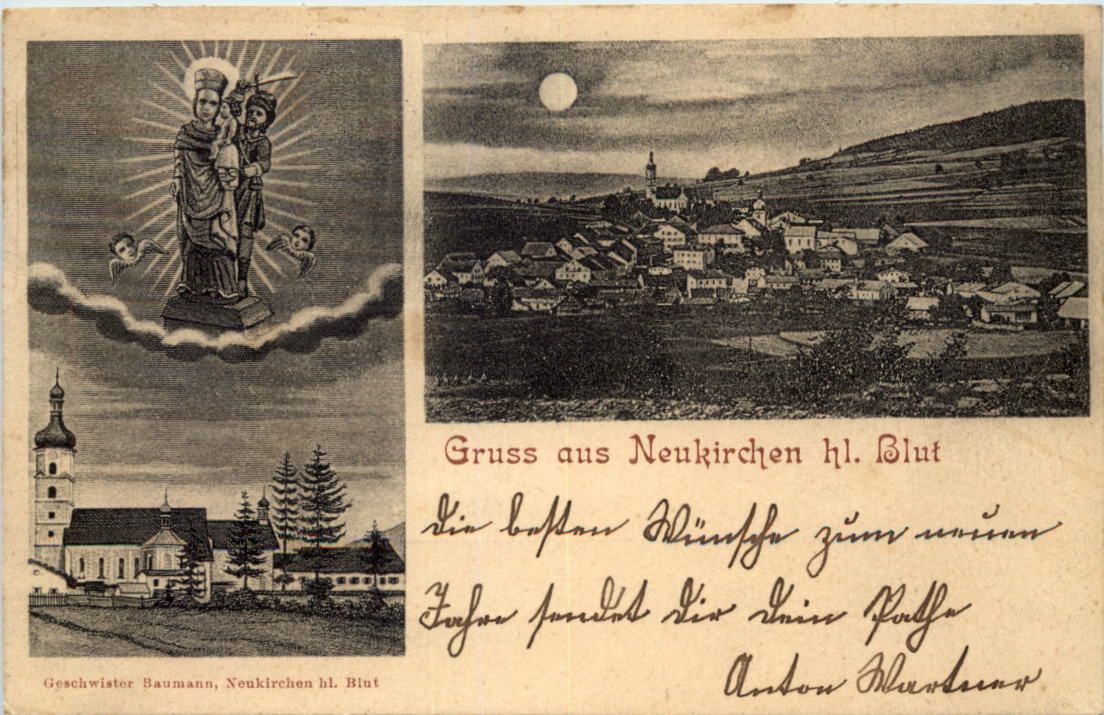 Gruss aus Neukirchen hl. Blut
Die besten Wünsche zum neuen
Jahre sendet Dir Dein Pathe
Anton Wartner
Geschwister Baumann, Neukirchen hl. Blut